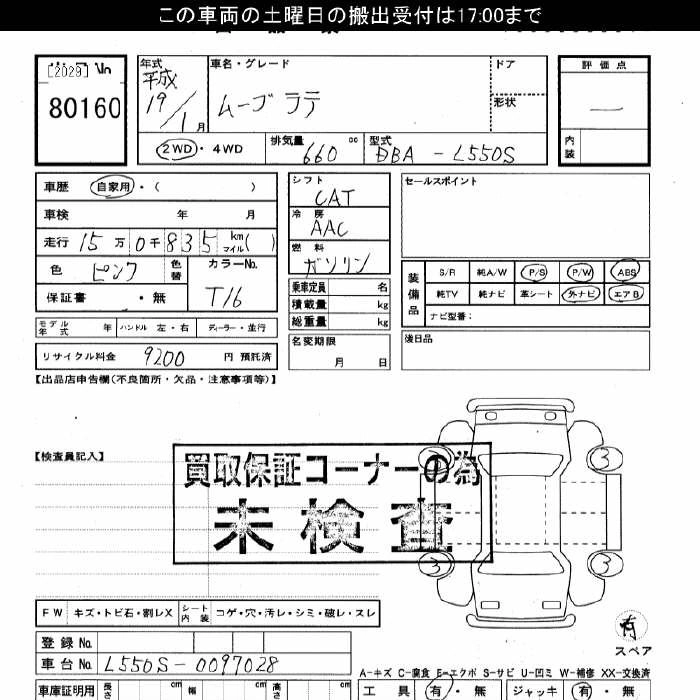 この車両の土曜日の搬出受付は17:00まで
[2029]
80160
年式 平成 19/1月
車名・グレード
ムーヴ ラテ
ドア
形状
評価点
内装
2WD・4WD
排気量 660 cc
型式 DBA - L550S
車歴 自家用・( )
車検 年 月
走行 15万0千835 km マイル( )
色 ピンク
色替
カラーNo. T16
保証書 ・無
モデル年式 年
ハンドル 左・右
ディーラー・並行
リサイクル料金 9200 円 預託済
シフト CAT
冷房 AAC
燃料 ガソリン
乗車定員 名
積載量 kg
総重量 kg
名変期限
月 日
セールスポイント
装備品
S/R 純A/W P/S P/W ABS
純TV 純ナビ 革シート 外ナビ エアB
ナビ型番:
後日品
【出品店申告欄(不良箇所・欠品・注意事項等)】
【検査員記入】
買取保証コーナーの為
未検査
3
3
3
3
有
スペア
FW キズ・トビ石・割レX
シート内装 コゲ・穴・汚レ・シミ・破レ・スレ
登録No.
車台No. L550S-0097028
A-キズ C-腐食 E-エクボ S-サビ U-凹ミ W-補修 XX-交換済
車庫証明用 長さ cm 幅 cm 高さ cm
工具 有・無 ジャッキ 有・無